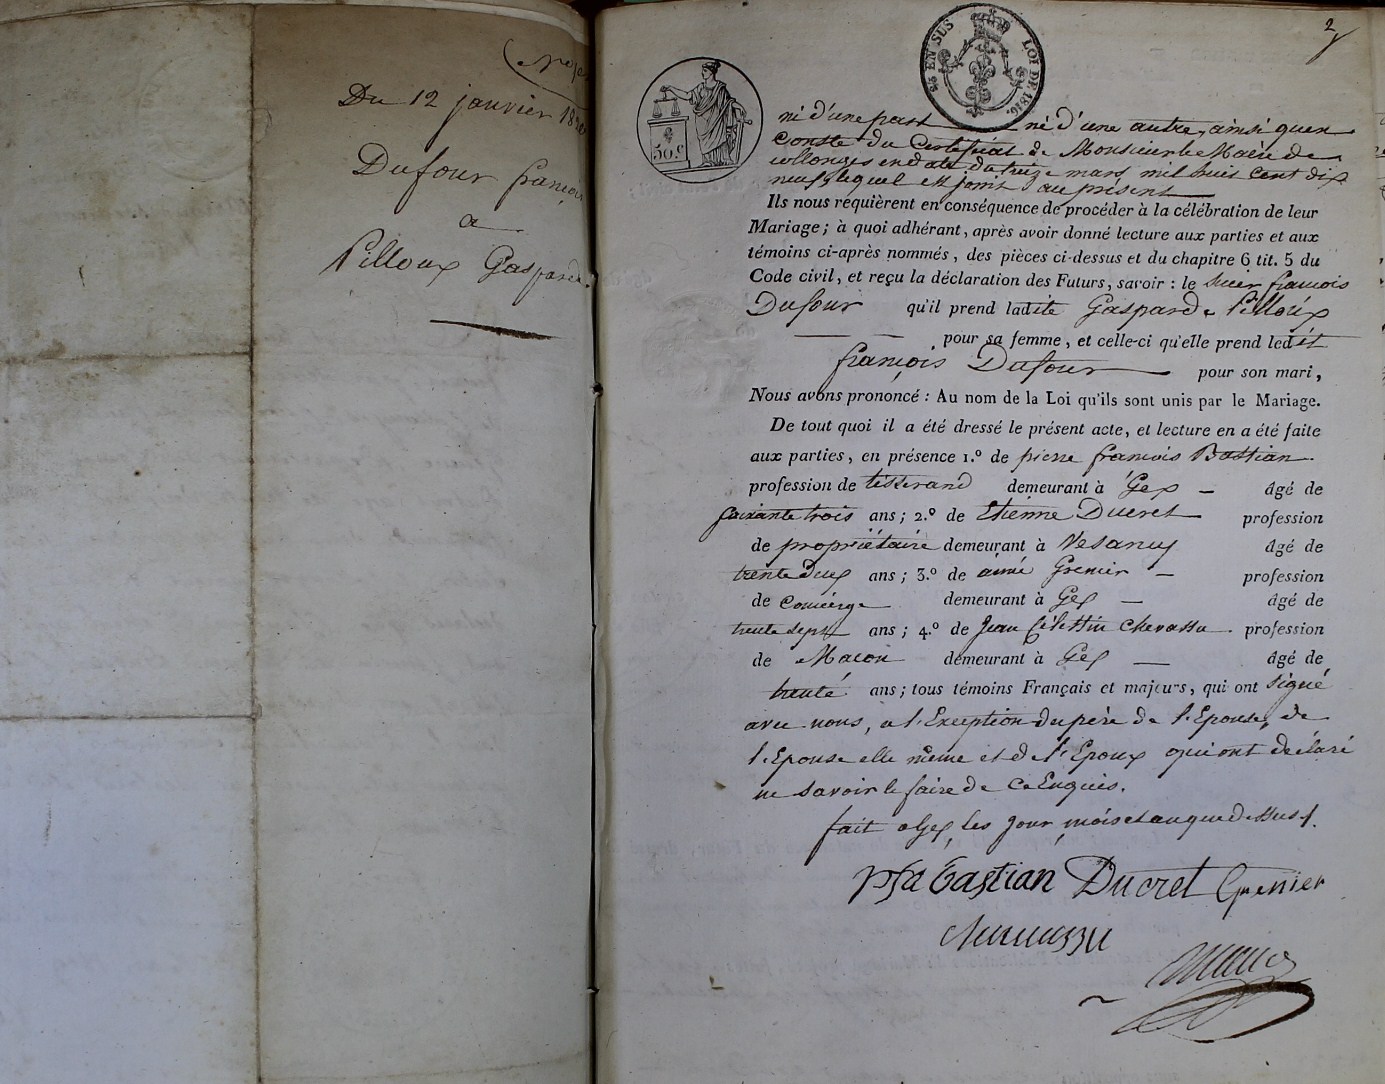 Du 12 janvier 18
Dufour françois
a
Pilloux Gasparde.
2
25c EN SUS LOI DE 1816.
50.c
ni d'une part ni d'une autre, ainsi qu'en
conste du Certificat de Monsieur le Maire de
collonges en date du treize mars mil huit cent dix
neuf, lequel est joint au présent
Ils nous requièrent en conséquence de procéder à la célébration de leur
Mariage; à quoi adhérant, après avoir donné lecture aux parties et aux
témoins ci-après nommés, des pièces ci-dessus et du chapitre 6 tit. 5 du
Code civil, et reçu la déclaration des Futurs, savoir : le sieur françois
Dufour qu'il prend ladite Gasparde Pilloux
pour sa femme, et celle-ci qu'elle prend ledit
françois Dufour pour son mari,
Nous avons prononcé : Au nom de la Loi qu'ils sont unis par le Mariage.
De tout quoi il a été dressé le présent acte, et lecture en a été faite
aux parties, en présence 1.º de pierre francois Bastian
profession de tisserand demeurant à Gex — âgé de
soixante trois ans; 2.º de Etienne Ducret profession
de propriétaire demeurant à Vesancy âgé de
trente Deux ans; 3.º de aimé Grenier — profession
de Concierge demeurant à Gex — âgé de
trente sept ans; 4.º de Jean Célestin Chevassu profession
de Macon demeurant à Gex — âgé de
trente ans; tous témoins Français et majeurs, qui ont signé
avec nous, a l'Exception du père de l'Epouse, de
l'Epouse elle même et de l'Epoux qui ont déclaré
ne savoir le faire de ce Enquis.
fait a Gex, les jour, mois et an que dessus.
pfs bastian Ducret Grenier